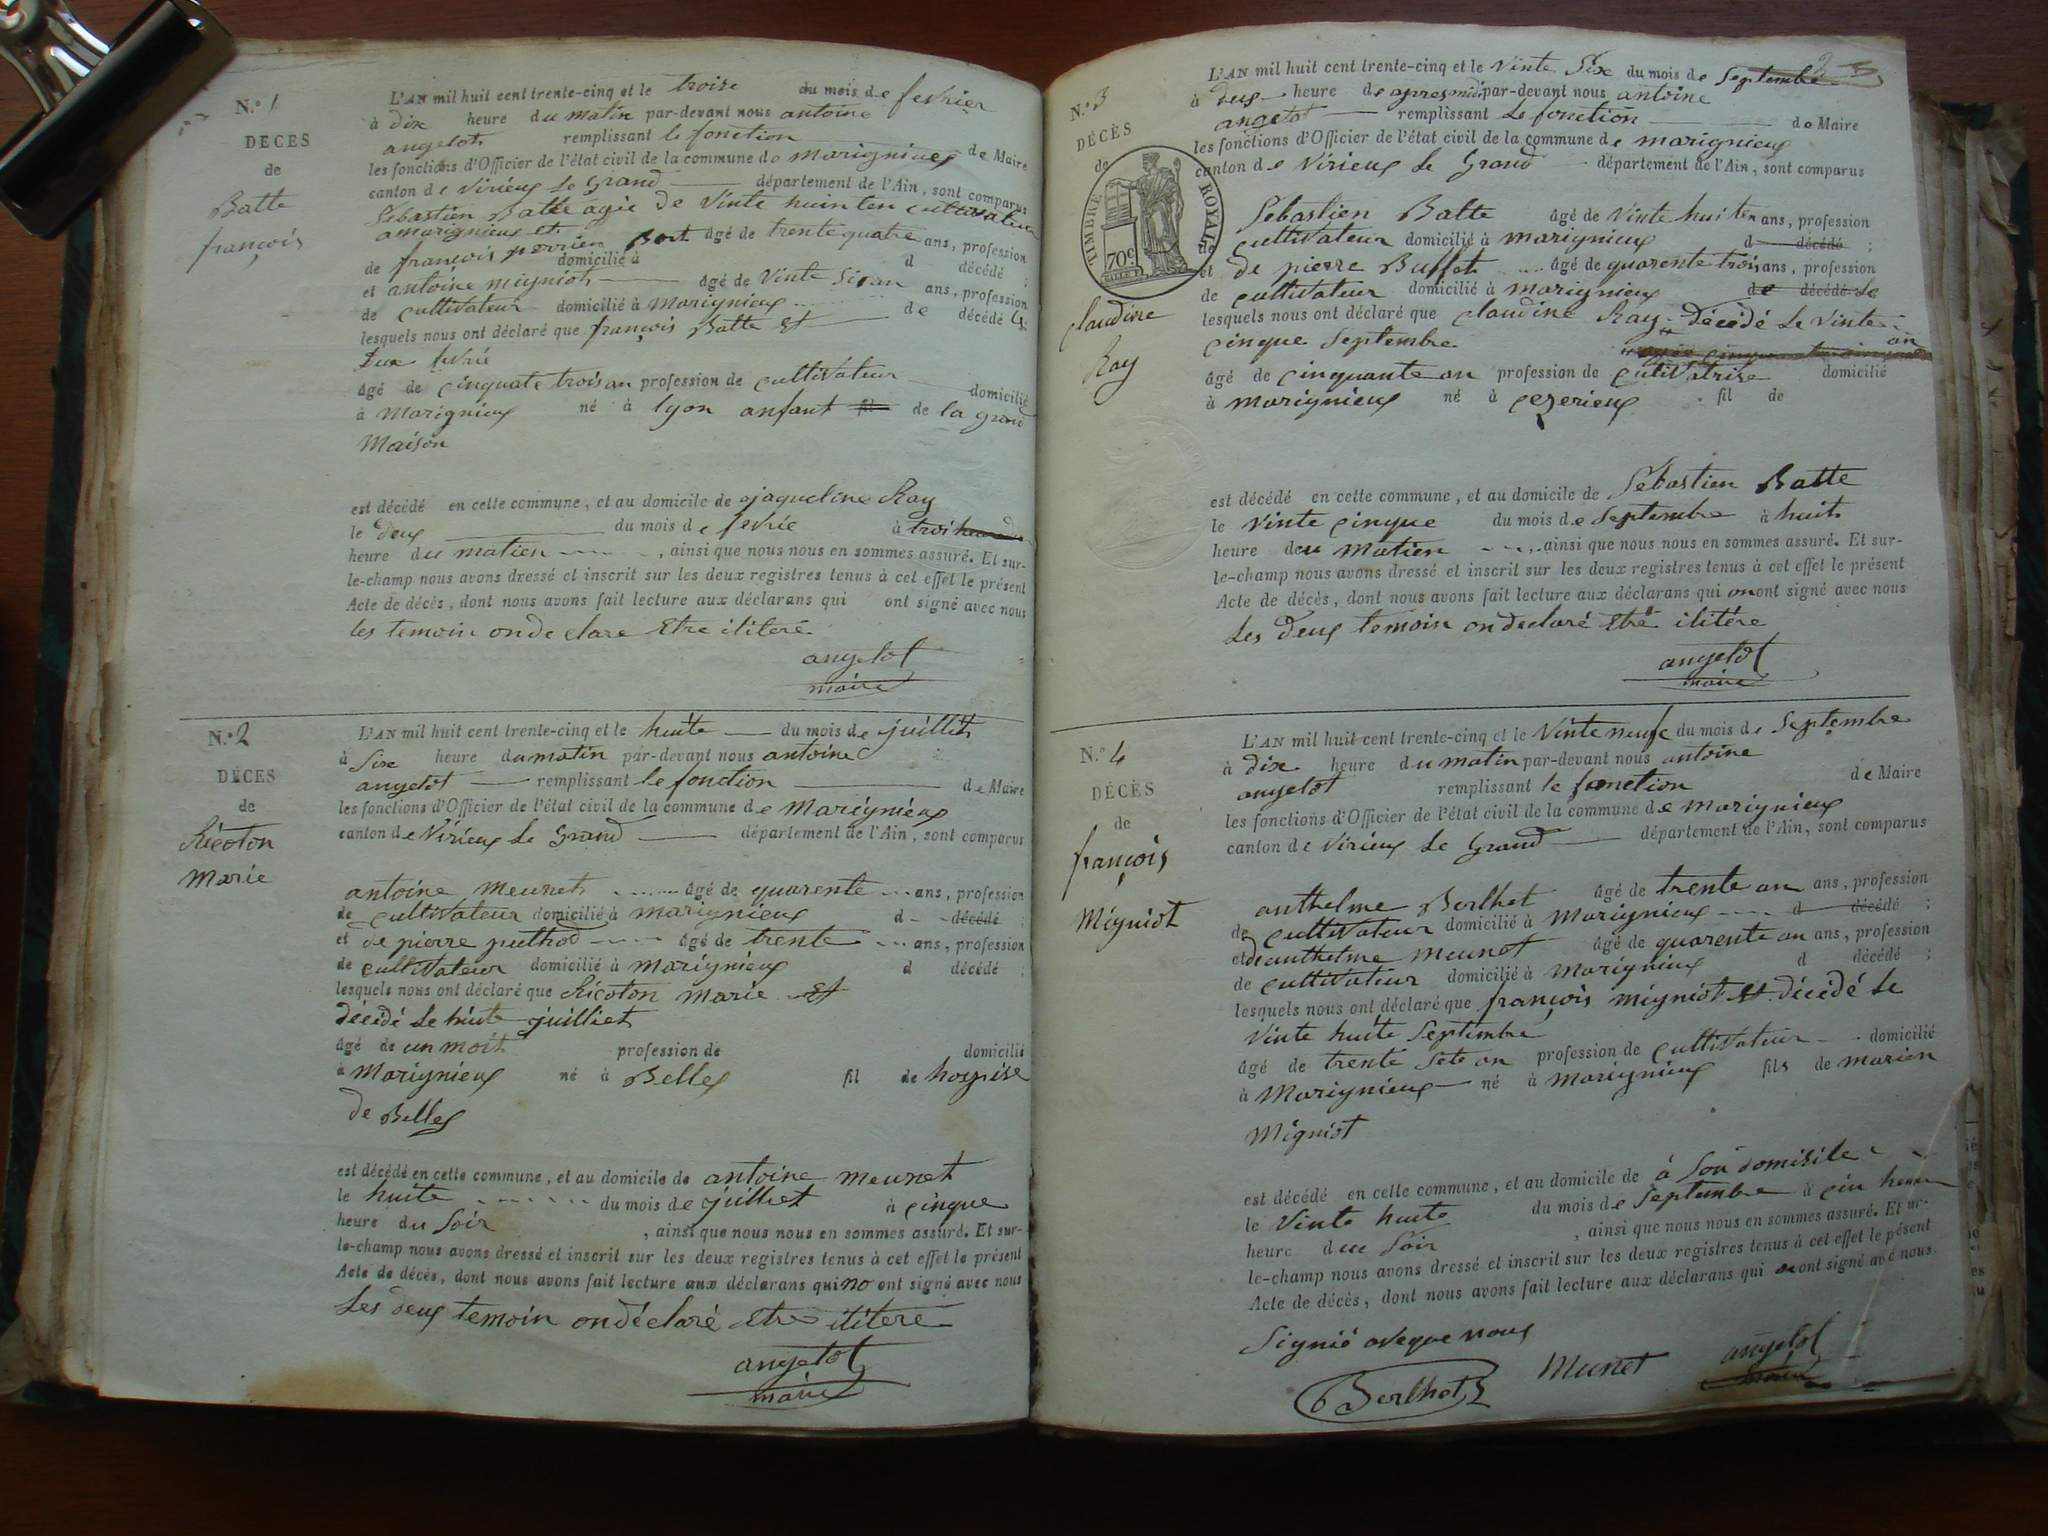 N.º 1
DÉCÈS
de
Batte
françois
L'AN mil huit cent trente-cinq et le troise du mois de fevrier
à dix heure du matin par-devant nous antoine
angelot remplissant le fonction de Maire
les fonctions d'Officier de l'état civil de la commune de marignieux
canton de Virieux Le Grand département de l'Ain, sont comparus
Sébastien Batte agée de Vinte huin ten cultivateur
amarignieux et
de françois perrien Bort âgé de trente quatre ans, profession
domicilié à d décédé ;
et antoine migniot âgé de Vinte Sisan ans, profession
de cultivateur domicilié à marignieux de décédé Le
lesquels nous ont déclaré que françois Batte et
Deux fevrié
âgé de cinquate trois an profession de cultivateur domicilié
à marignieux né à lyon anfant fil de la grand
Maison
est décédé en cette commune, et au domicile de jaqueline Ray
le deux du mois de fevrié à trois heure
heure du matien , ainsi que nous nous en sommes assuré. Et sur-
le-champ nous avons dressé et inscrit sur les deux registres tenus à cet effet le présent
Acte de décès, dont nous avons fait lecture aux déclarans qui ont signé avec nous
les temoin onde clare Etre ilitere
angelot
maire
N.º 2
DÉCÈS
de
Ricoton
Marie
L'AN mil huit cent trente-cinq et le huite du mois de juillit
à Six heure du matin par-devant nous antoine
angelot remplissant le fonction de Maire
les fonctions d'Officier de l'état civil de la commune de Marignieux
canton de Virieux Le Grand département de l'Ain, sont comparus
antoine meunet âgé de quarente ans, profession
de cultivateur domicilié à marignieux d décédé ;
et de pierre puthod âgé de trente ans, profession
de cultivateur domicilié à marignieux d décédé ;
lesquels nous ont déclaré que Ricoton Marie Et
décédé Le huite juilliet
âgé de un moit profession de domicilié
à Marignieux né à Belley fil de hospise
de Belley
est décédé en cette commune, et au domicile de antoine meunet
le huite du mois de juilliet à cinque
heure du Soir , ainsi que nous nous en sommes assuré. Et sur-
le-champ nous avons dressé et inscrit sur les deux registres tenus à cet effet le présent
Acte de décès, dont nous avons fait lecture aux déclarans qui no ont signé avec nous
Les deux temoin on déclaré Etre ilitere
angelot
maire
N.º 3
DÉCÈS
de
TIMBRE ROYAL
70c
claudine
Ray
L'AN mil huit cent trente-cinq et le Vinte Six du mois de Septembre
à deux heure de apres midi par-devant nous antoine
angelot remplissant Le fonction de Maire
les fonctions d'Officier de l'état civil de la commune de marignieux
canton de Virieux Le Grand département de l'Ain, sont comparus
Sebastien Batte âgé de Vinte huiten ans, profession
cultivateur domicilié à marignieux d décédé ;
et de pierre Buffet âgé de quarente trois ans, profession
de cultivateur domicilié à marignieux de décédé Le
lesquels nous ont déclaré que claudine Ray décédé Le Vinte
cinque Septembre
âgé de cinquante an profession de cutivatrise domicilié
à marignieux né à cezerieux fil de
est décédé en cette commune, et au domicile de Sébastien Batte
le vinte cinque du mois de Septembre à huit
heure deu Matien , ainsi que nous nous en sommes assuré. Et sur-
le-champ nous avons dressé et inscrit sur les deux registres tenus à cet effet le présent
Acte de décès, dont nous avons fait lecture aux déclarans qui on ont signé avec nous
Les deux temoin on declaré Etre ilitére
angelot
maire
N.º 4
DÉCÈS
de
françois
Migniot
L'AN mil huit cent trente-cinq et le Vinte neufe du mois de Septembre
à dix heure du matin par-devant nous antoine
angelot remplissant le fonction de Maire
les fonctions d'Officier de l'état civil de la commune de marignieux
canton de Virieux Le Grand département de l'Ain, sont comparus
anthelme Berthet âgé de trente an ans, profession
de cultivateur domicilié à Marignieux d décédé ;
et de anthelme meunet âgé de quarente an ans, profession
de cultivateur domicilié à Marignieux d décédé ;
lesquels nous ont déclaré que françois Migniot Et décédé Le
Vinte huite Septembre
âgé de trente Sete an profession de cultivateur domicilié
à Marignieux né à Marignieux fils de marien
Migniot
est décédé en cette commune, et au domicile de à Son domisile
le Vinte huite du mois de Septembre à cin heure
heure deu Soir , ainsi que nous nous en sommes assuré. Et sur-
le-champ nous avons dressé et inscrit sur les deux registres tenus à cet effet le présent
Acte de décès, dont nous avons fait lecture aux déclarans qui ont signé avec nous
Signié aveque nous
Berthet Munet angelot
maire